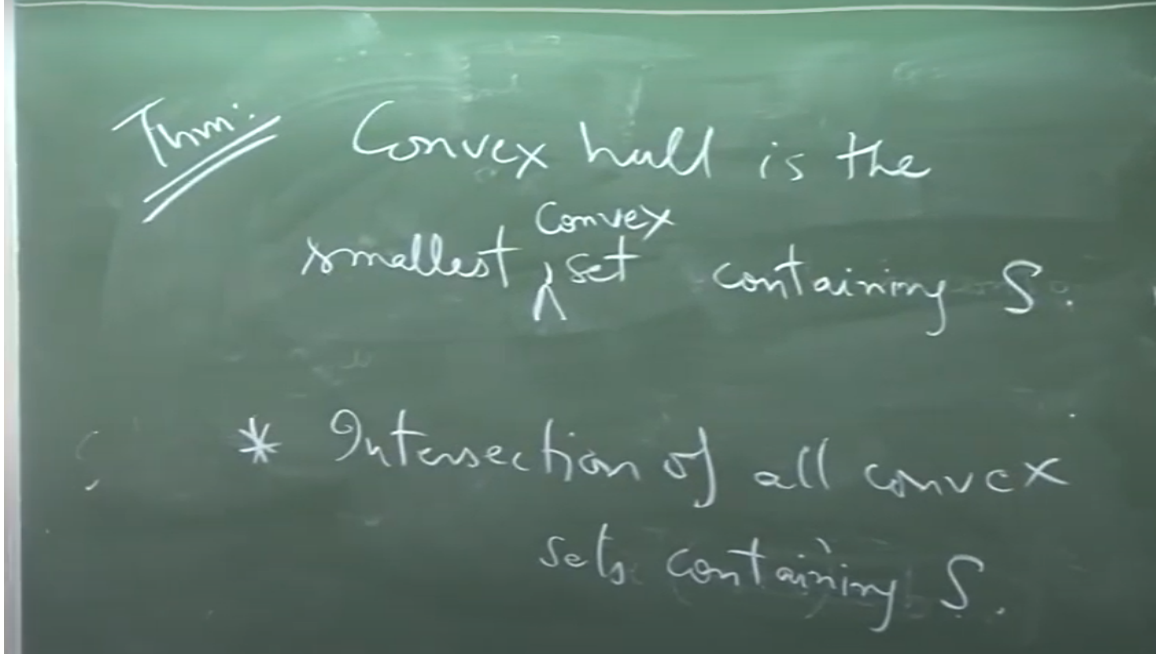 Thm: Convex hull is the
smallest convex set containing S.
* Intersection of all convex
sets containing S.